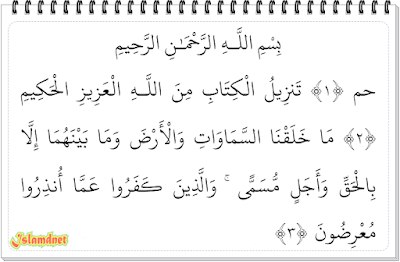 بِسْمِ اللَّـهِ الرَّحْمَـٰنِ الرَّحِيمِ
حم ﴿١﴾ تَنزِيلُ الْكِتَابِ مِنَ اللَّـهِ الْعَزِيزِ الْحَكِيمِ
﴿٢﴾ مَا خَلَقْنَا السَّمَاوَاتِ وَالْأَرْضَ وَمَا بَيْنَهُمَا إِلَّا
بِالْحَقِّ وَأَجَلٍ مُّسَمًّى ۚ وَالَّذِينَ كَفَرُوا عَمَّا أُنذِرُوا
مُعْرِضُونَ ﴿٣﴾
Islamdnet